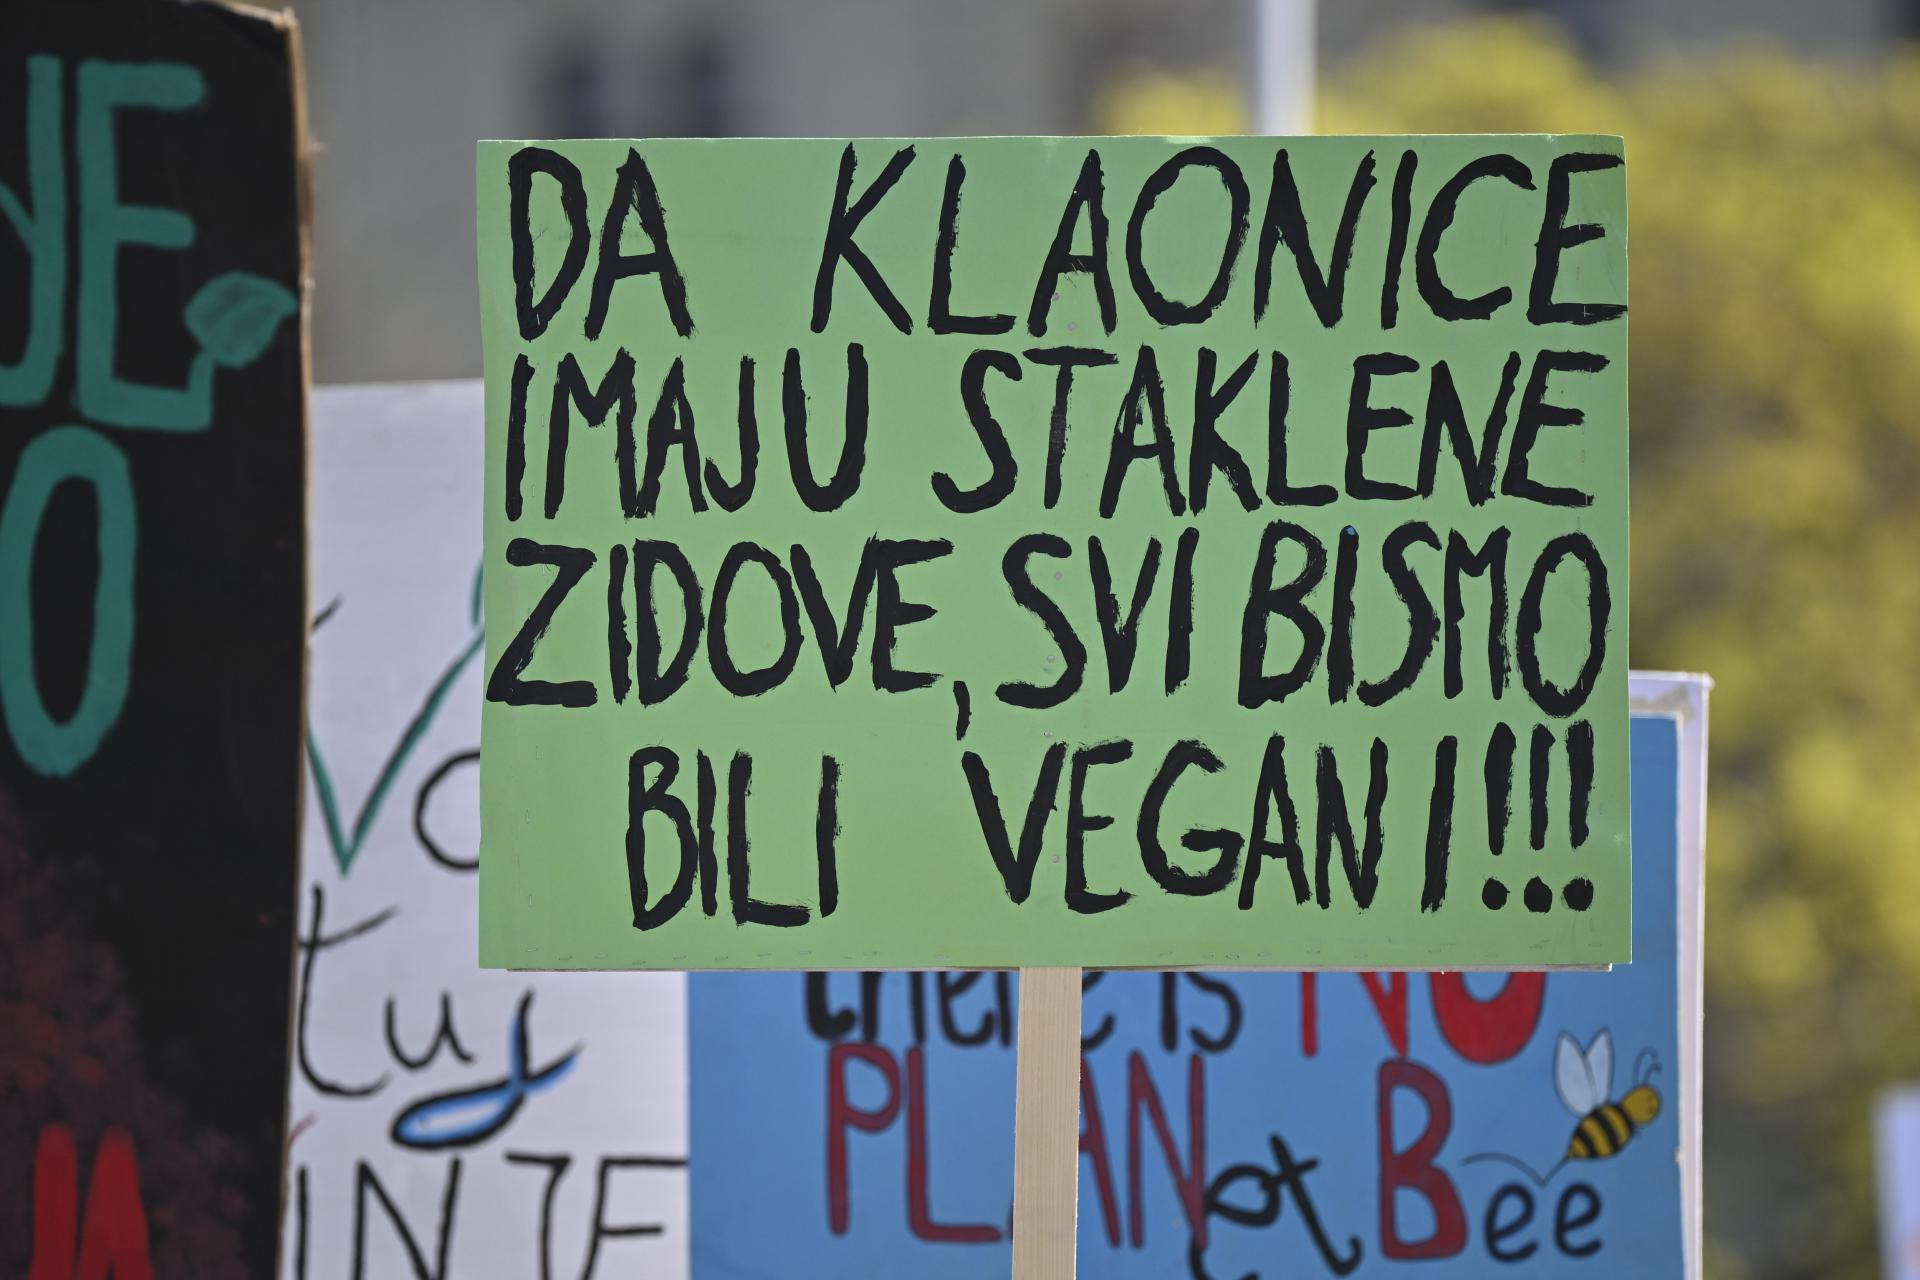 DA KLAONICE
IMAJU STAKLENE
ZIDOVE, SVI BISMO
BILI VEGANI!!!
there is NO
PLAN et Bee